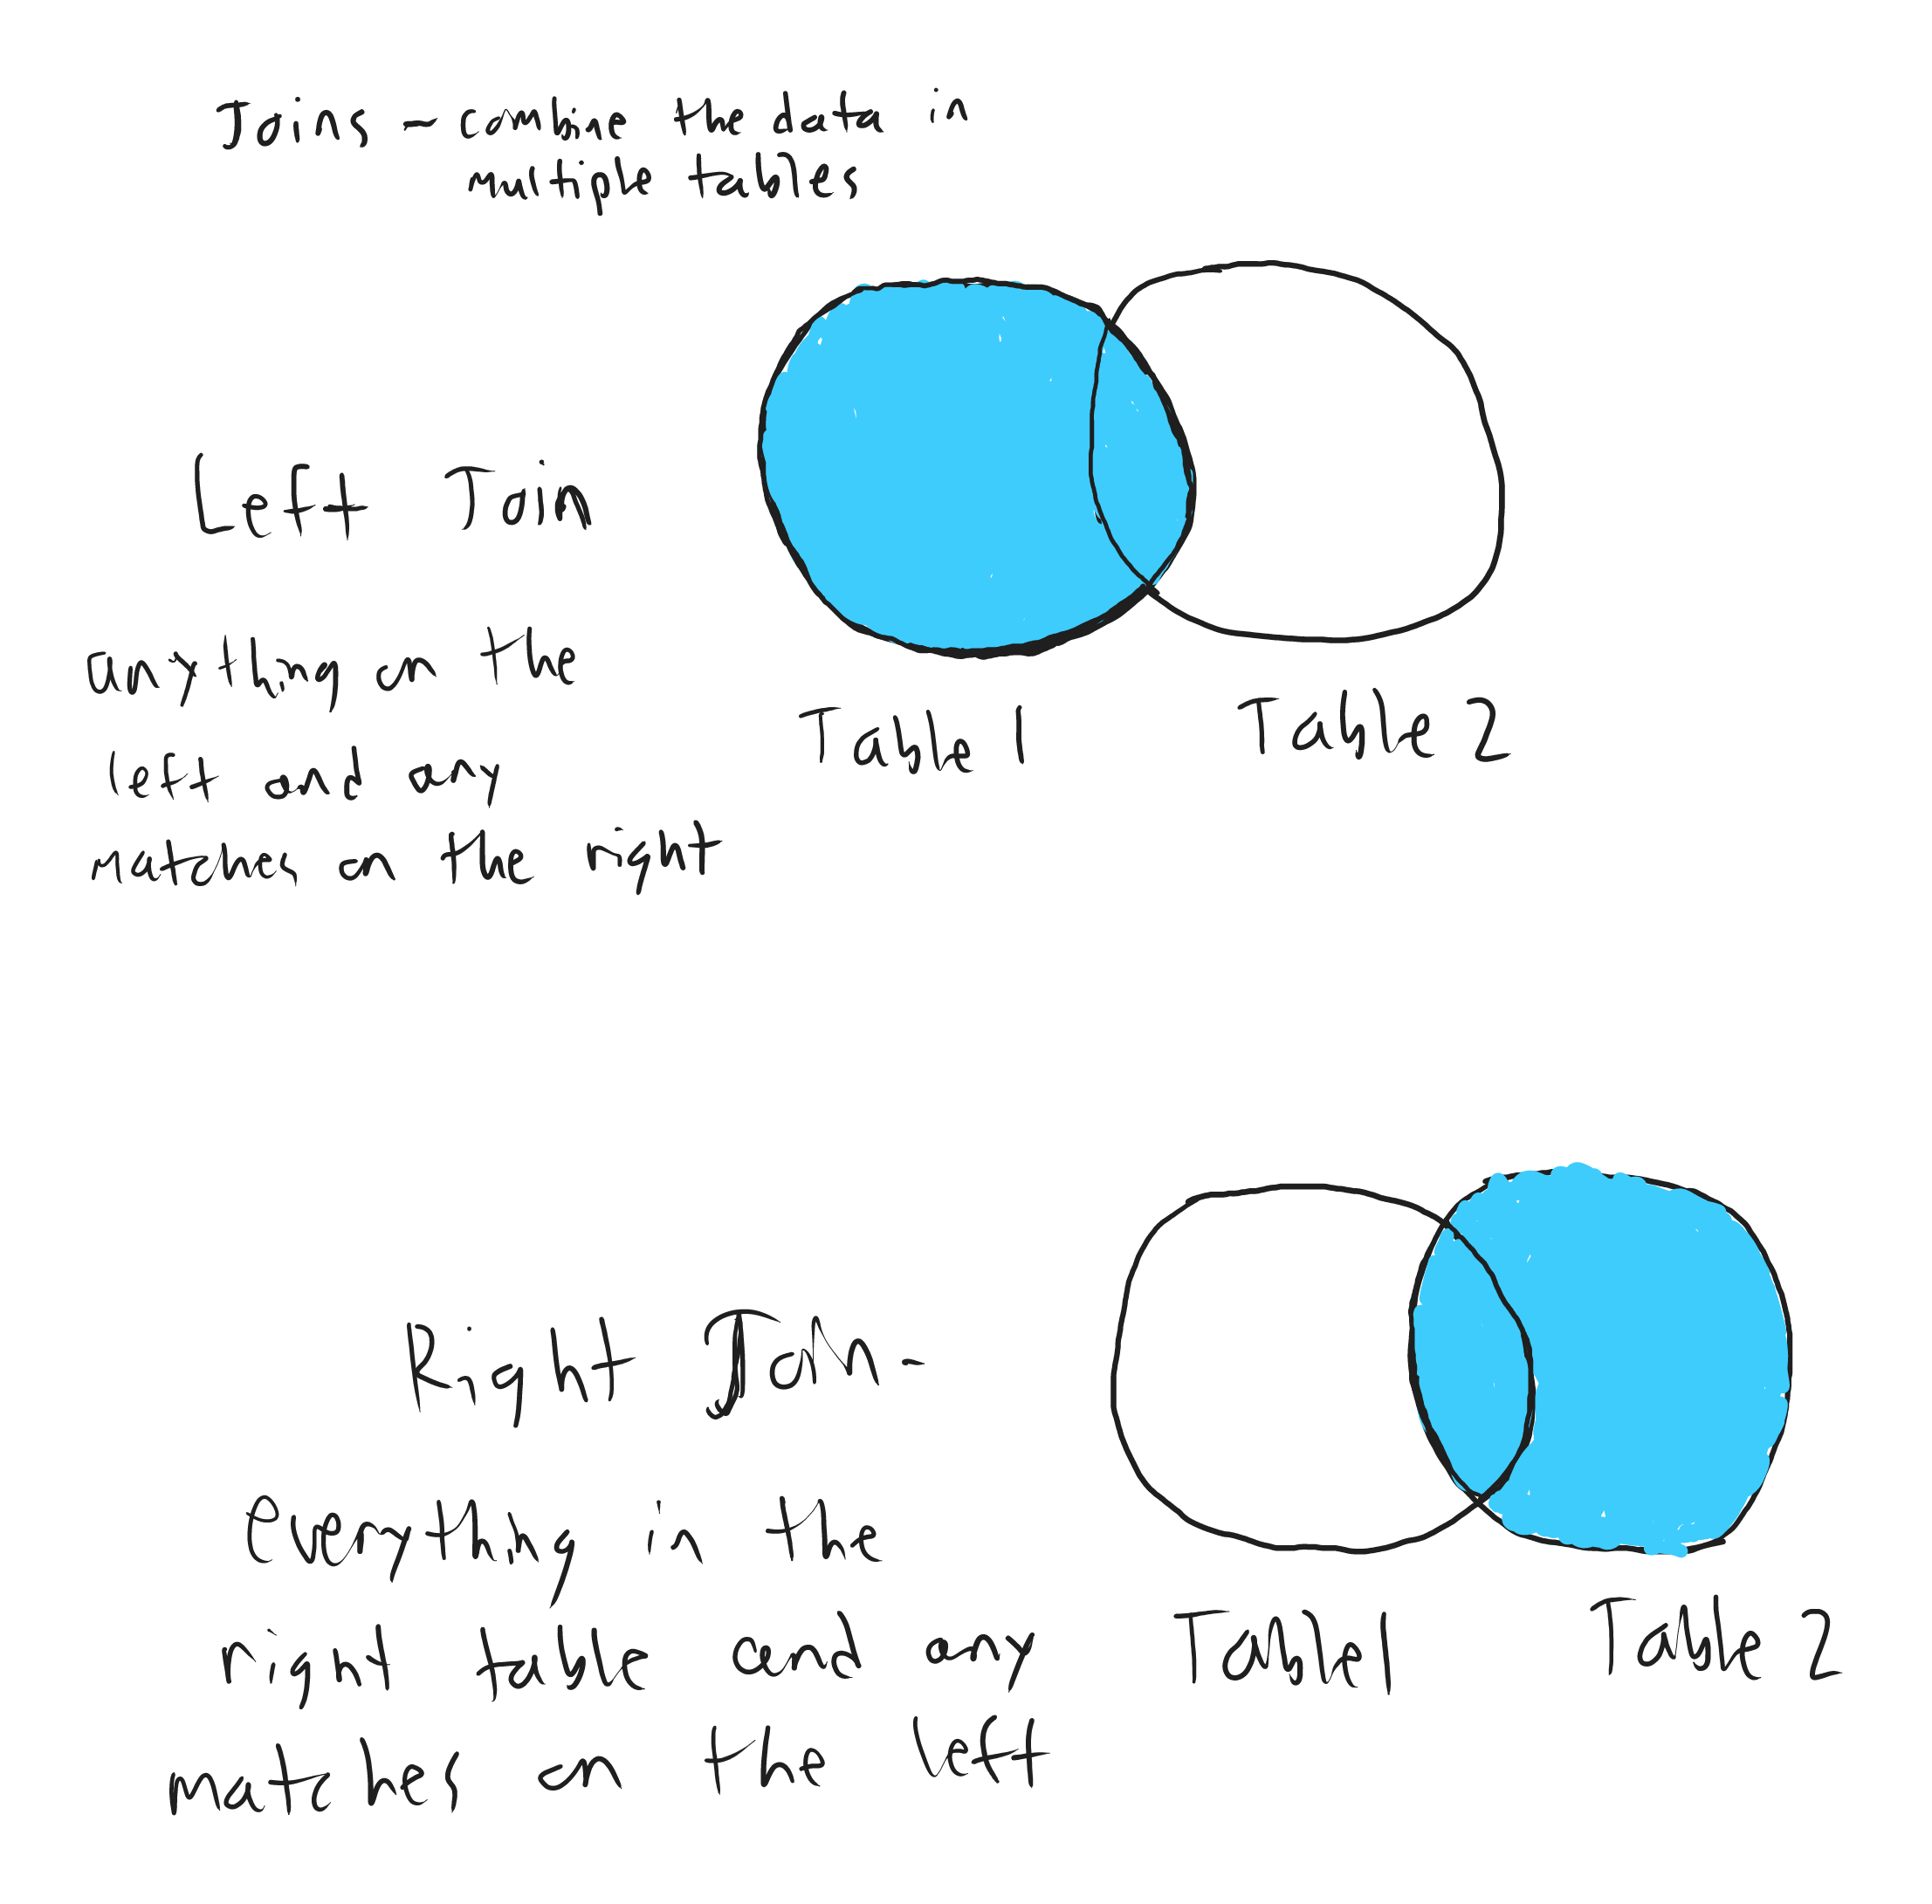 Joins - combine the data in
multiple tables
Left Join
anything on the
left and any
matches on the right
Table 1
Table 2
Right Join -
everything in the
right table and any
matches on the left
Table 1
Table 2